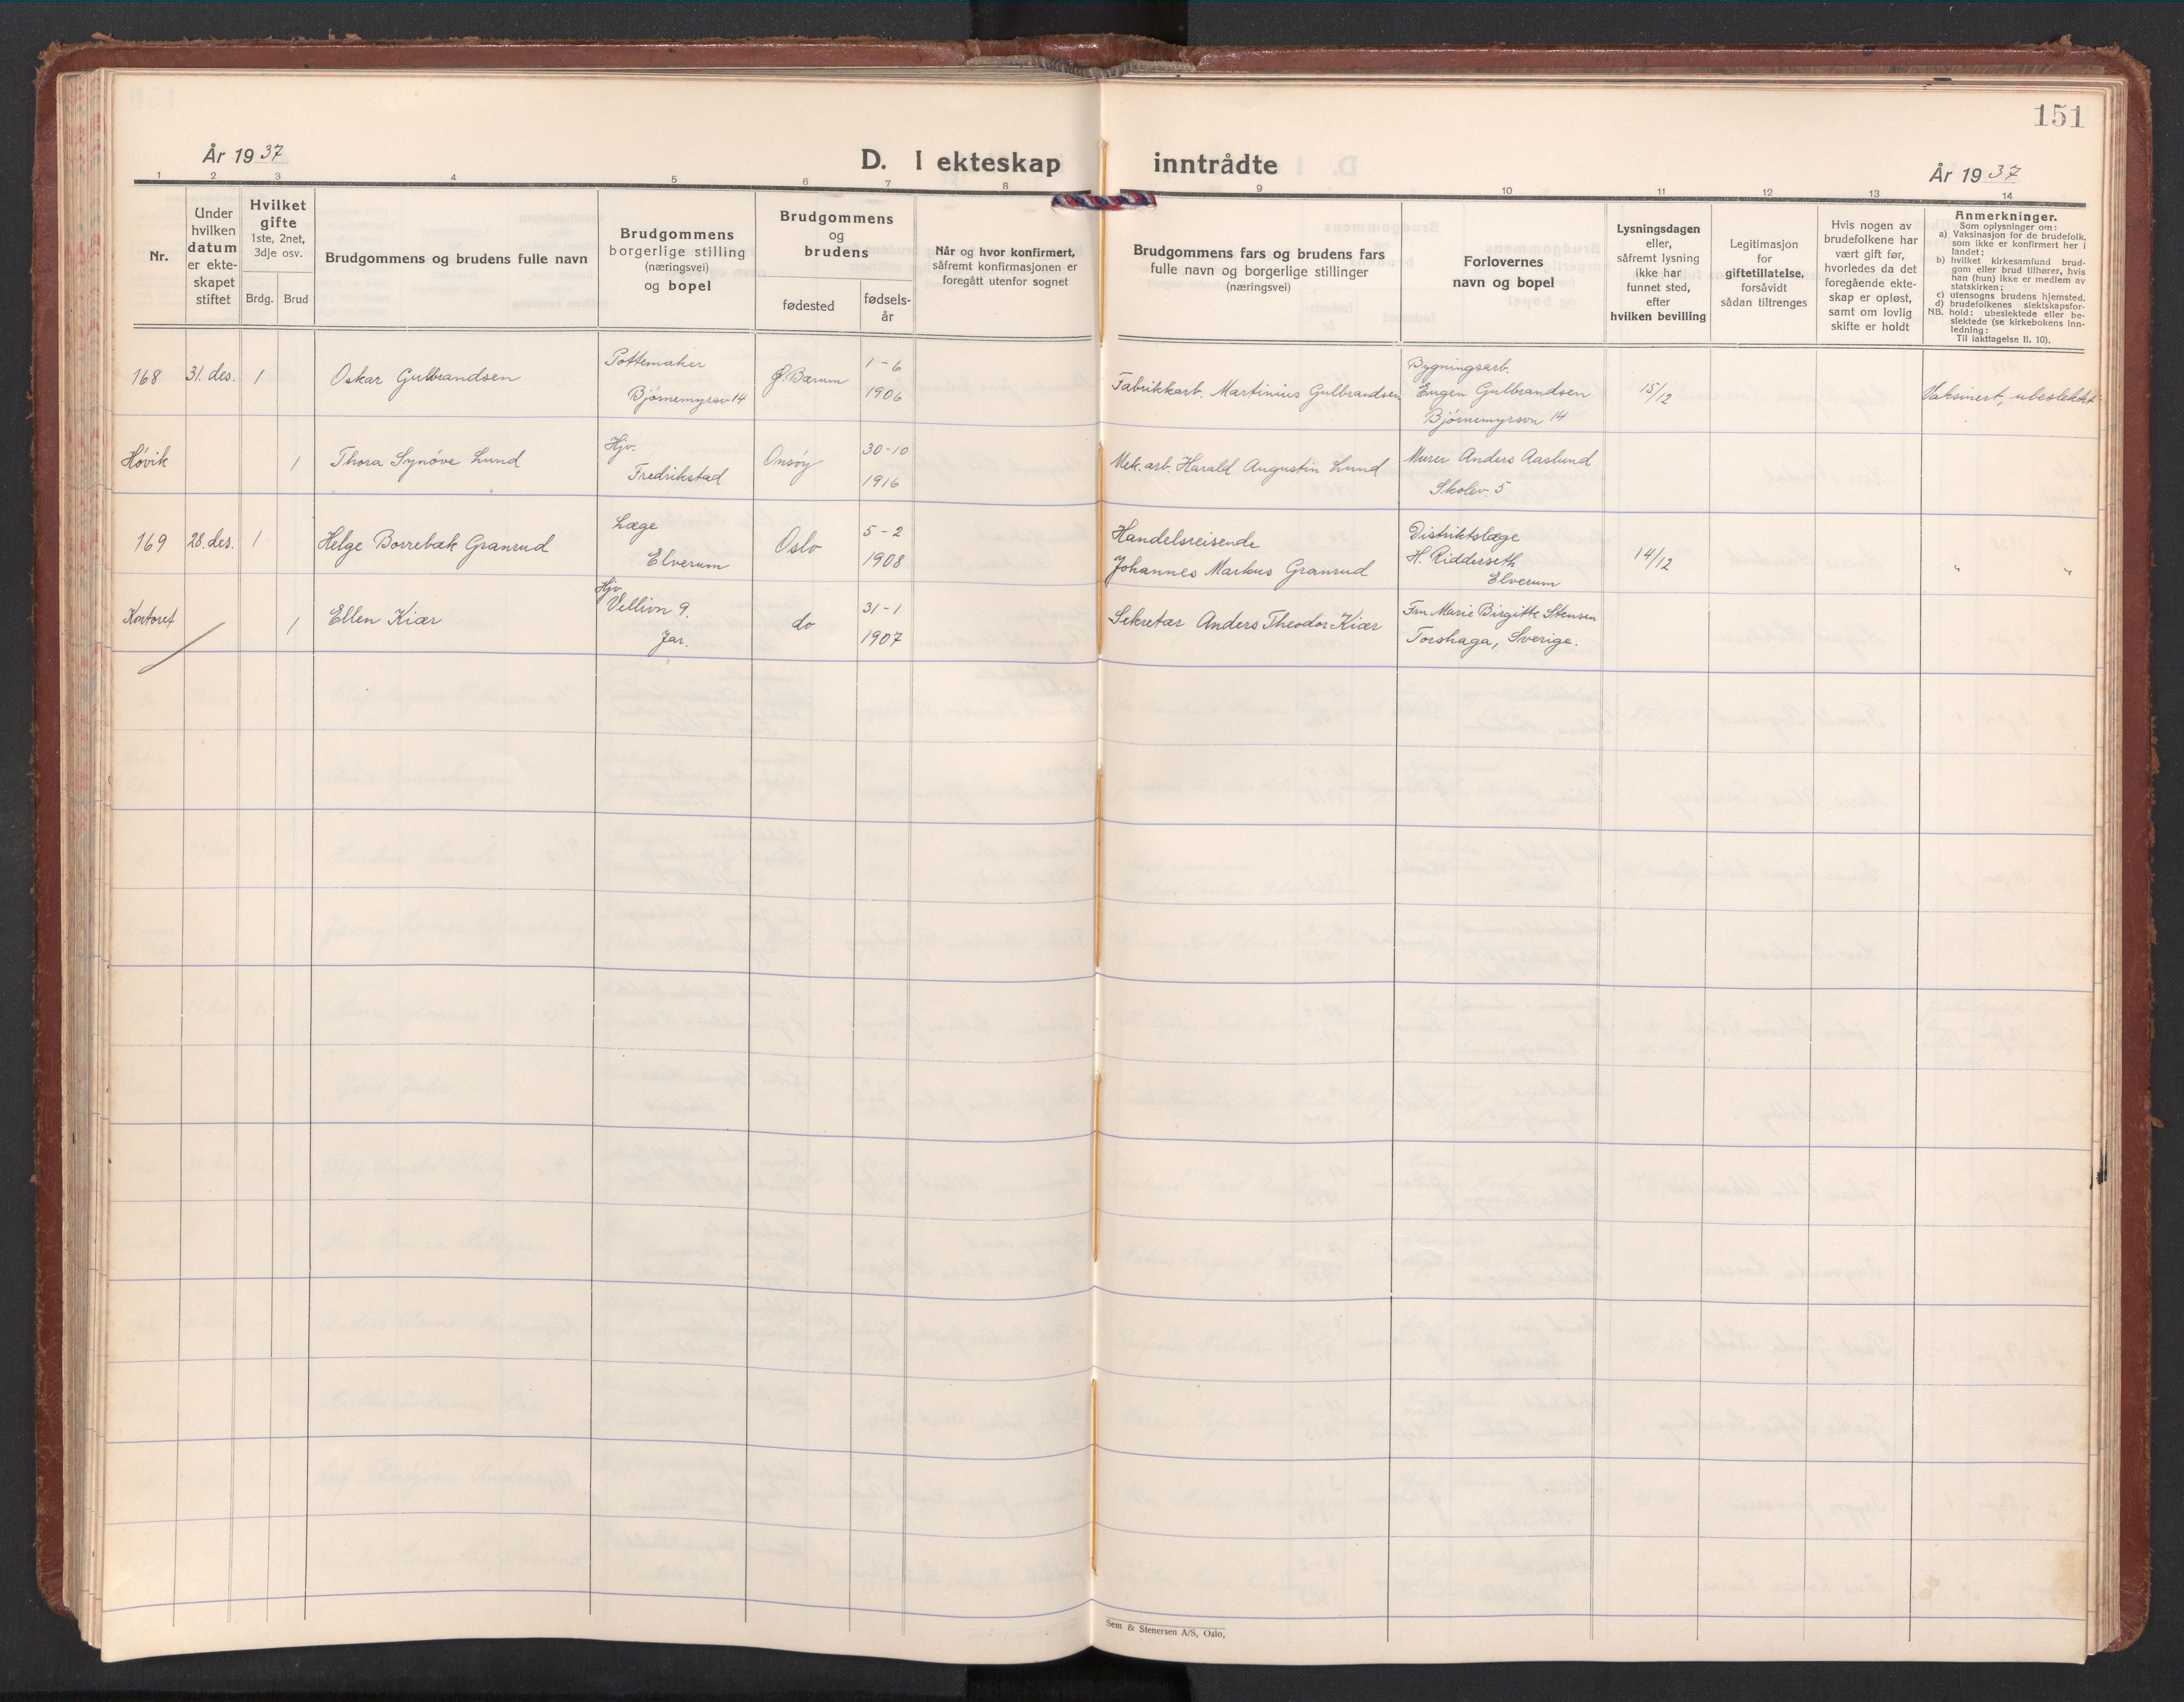 151
År 1937
D. I ekteskap inntrådte
År 1937
1 2 3 4 5 6 7 8 9 10 11 12 13 14
Nr.
Under
hvilken
datum
er ekte-
skapet
stiftet
Hvilket
gifte
1ste, 2net,
3dje osv.
Brdg. Brud
Brudgommens og brudens fulle navn
Brudgommens
borgerlige stilling
(næringsvei)
og bopel
Brudgommens
og
brudens
fødested
fødsels-
år
Når og hvor konfirmert,
såfremt konfirmasjonen er
foregått utenfor sognet
Brudgommens fars og brudens fars
fulle navn og borgerlige stillinger
(næringsvei)
Forlovernes
navn og bopel
Lysningsdagen
eller,
såfremt lysning
ikke har
funnet sted,
efter
hvilken bevilling
Legitimasjon
for
giftetillatelse,
forsåvidt
sådan tiltrenges
Hvis nogen av
brudefolkene har
vært gift før,
hvorledes da det
foregående ekte-
skap er opløst,
samt om lovlig
skifte er holdt
Anmerkninger.
Som oplysninger om:
a) Vaksinasjon for de brudefolk,
som ikke er konfirmert her i
landet;
b) hvilket kirkesamfund brud-
gom eller brud tilhører, hvis
han (hun) ikke er medlem av
statskirken;
c) utensogns brudens hjemsted.
d) brudefolkenes slektskapsfor-
NB. hold: ubeslektede eller be-
slektede (se kirkebokens inn-
ledning:
Til iakttagelse II. 10).
168 31. des. 1 Oskar Gulbrandsen
Pottemaker
Bjørnemyrsv 14
Ø. Bærum
1-6
1906
Fabrikkarb. Martinius Gulbrandsen
Bygningsarb.
Eugen Gulbrandsen
Bjørnemyrsvn 14
15/12
Vaksinert, ubeslektet
Høvik 1 Thora Synöve Lund
Hjv.
Fredrikstad
Onsøy
30-10
1916
Mek. arb. Harald Augustin Lund
Murer Anders Aaslund
Skolev. 5
169 28. des. 1 Helge Borrebæk Granrud
Læge
Elverum
Oslo
5-2
1908
Handelsreisende
Johannes Markus Granrud
Distriktslæge
H. Ridderseth
Elverum
14/12
" "
Kontoret 1 Ellen Kiær
Hjv.
Vellivn 9.
Jar.
do
31-1
1907
Sekretær Anders Theodor Kiær
Fru Marie Birgitte Stensen
Torshaga, Sverige.
Sem & Stenersen A/S, Oslo,